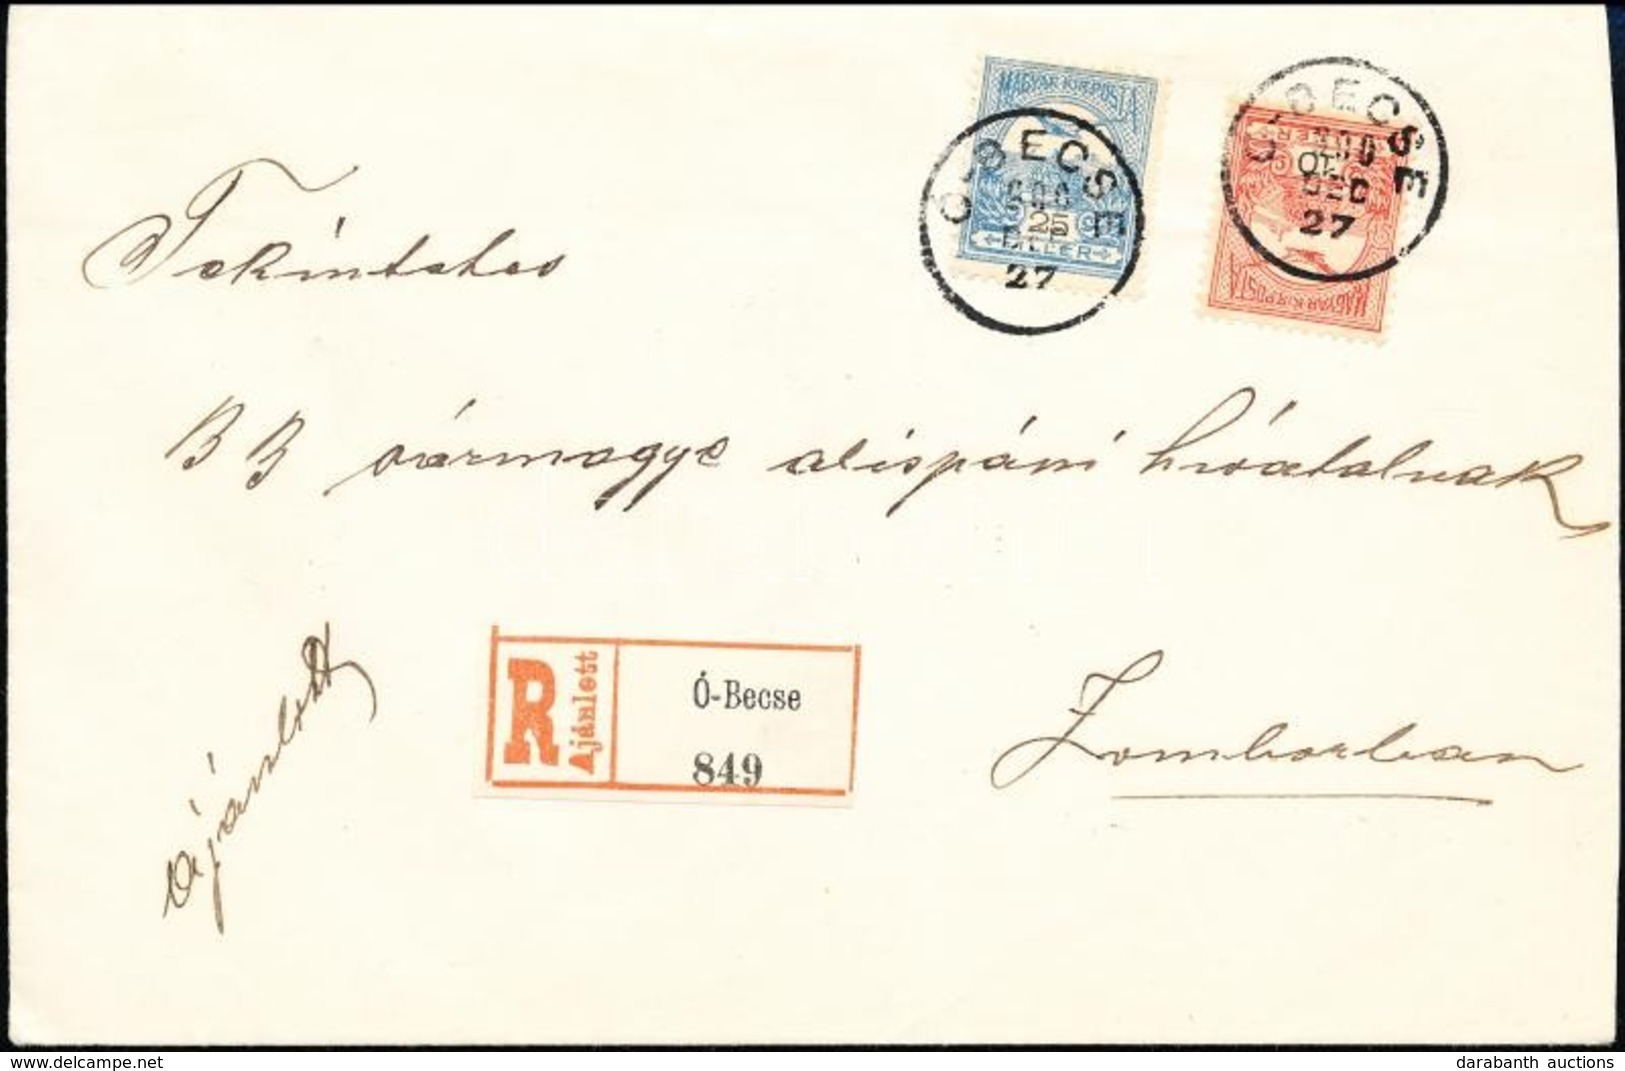 MAGYAR KIR. POSTA
25
FILLÉR
Ó-BECSE
900
DEC
27
ÖT
FILLÉR
MAGYAR KIR. POSTA
Ó-BECSE
900
DEC
27
Tekintetes
BB vármegye alispáni hivatalnak
Zomborban
Ajánlott
R
Ajánlott
Ó-Becse
849
delcampe.net
darabanth auctions